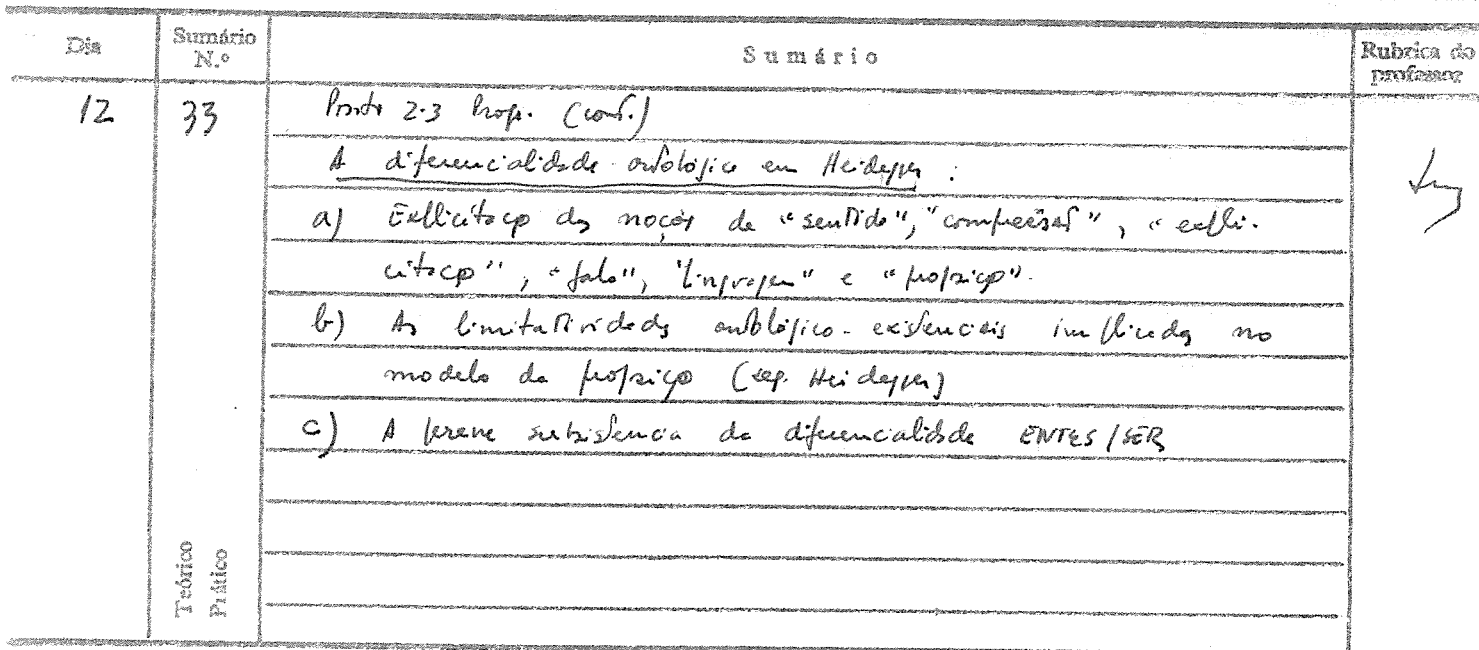 Dia
Sumário N.º
Sumário
Rubrica do professor
12
33
Ponto 2.3 Prog. (cont.)
A diferencialidade ontológica em Heidegger :
a) Explicitação das noções de "sentido", "compreensão", "expli-
citação", "fala", "linguagem" e "proposição".
b) As limitatividades ontológico-existenciais implicadas no
modelo da proposição (seg. Heidegger)
c) A perene subsistência da diferencialidade ENTES/SER
Teórico
Prático